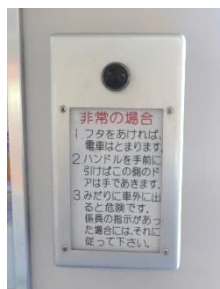 非常の場合
1 フタをあければ、
電車はとまります。
2 ハンドルを手前に
引けばこの側のド
アは手であきます。
3 みだりに車外に出
ると危険です。
係員の指示があっ
た場合には、それに
従って下さい。